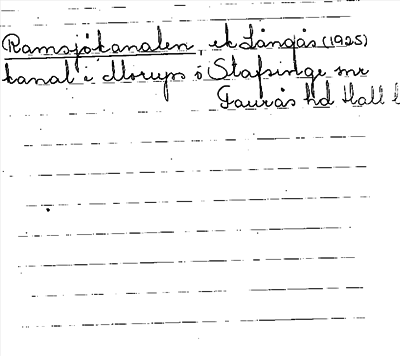 Ramsjökanalen, ek Långås (1925)
kanal i Morups o Stafsinge snr
Faurås hd Hall l